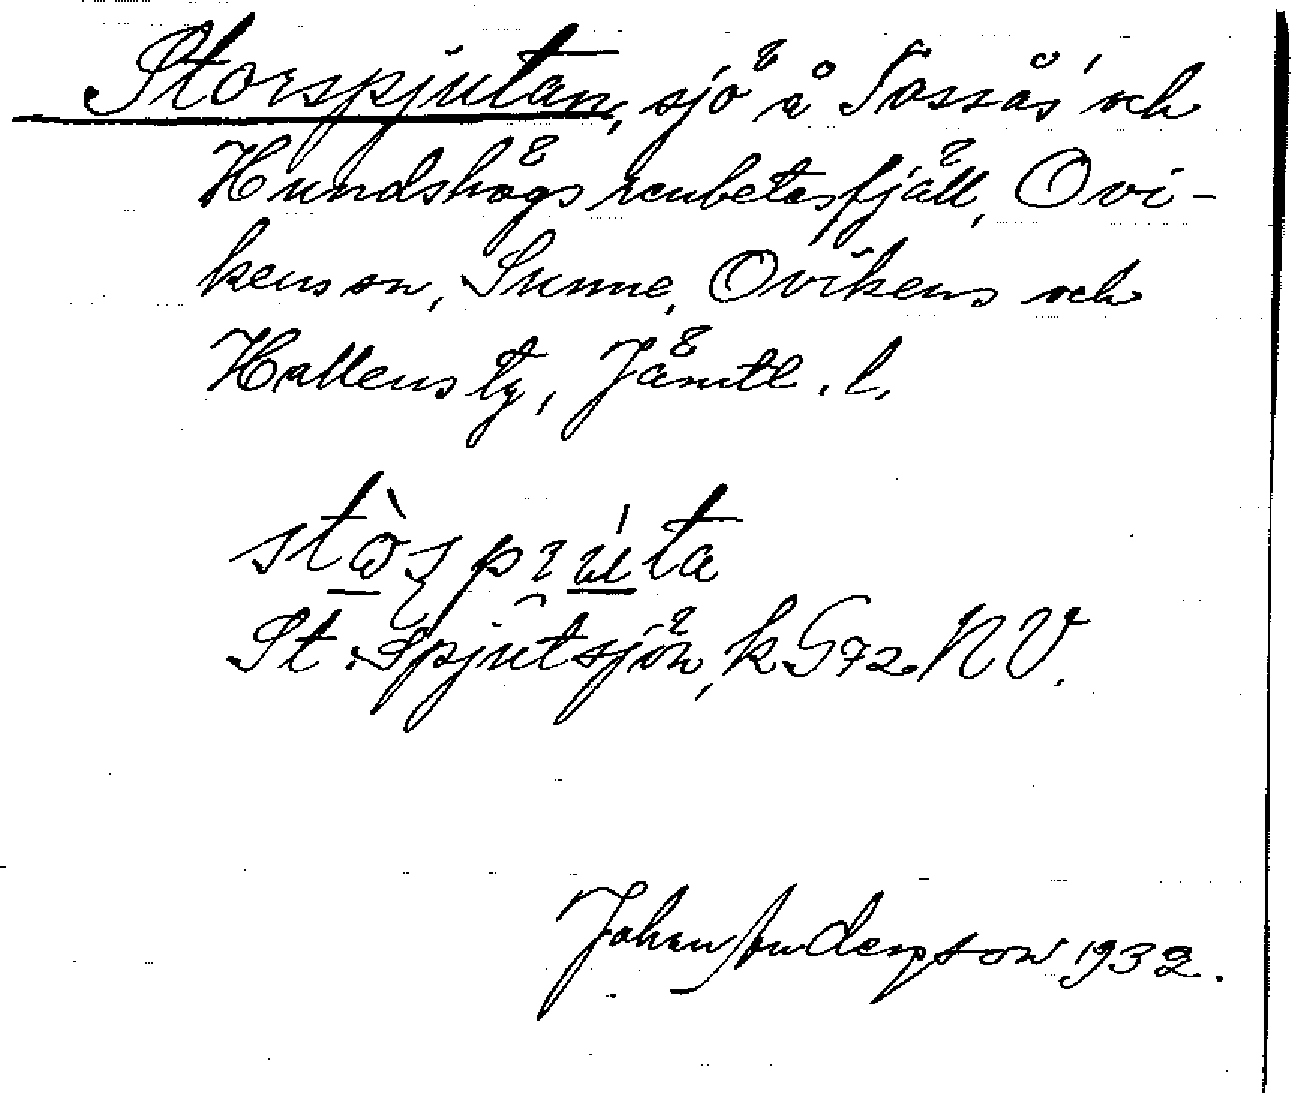 Storspjutan, sjö å Tossås' och
Hundshögs renbetesfjäll, Ovi-
kens sn, Sunne, Ovikens och
Hallens tg, Jämtl. l.
St. Spjutsjön, k G 72 NV.
Johan Anderson 1932.